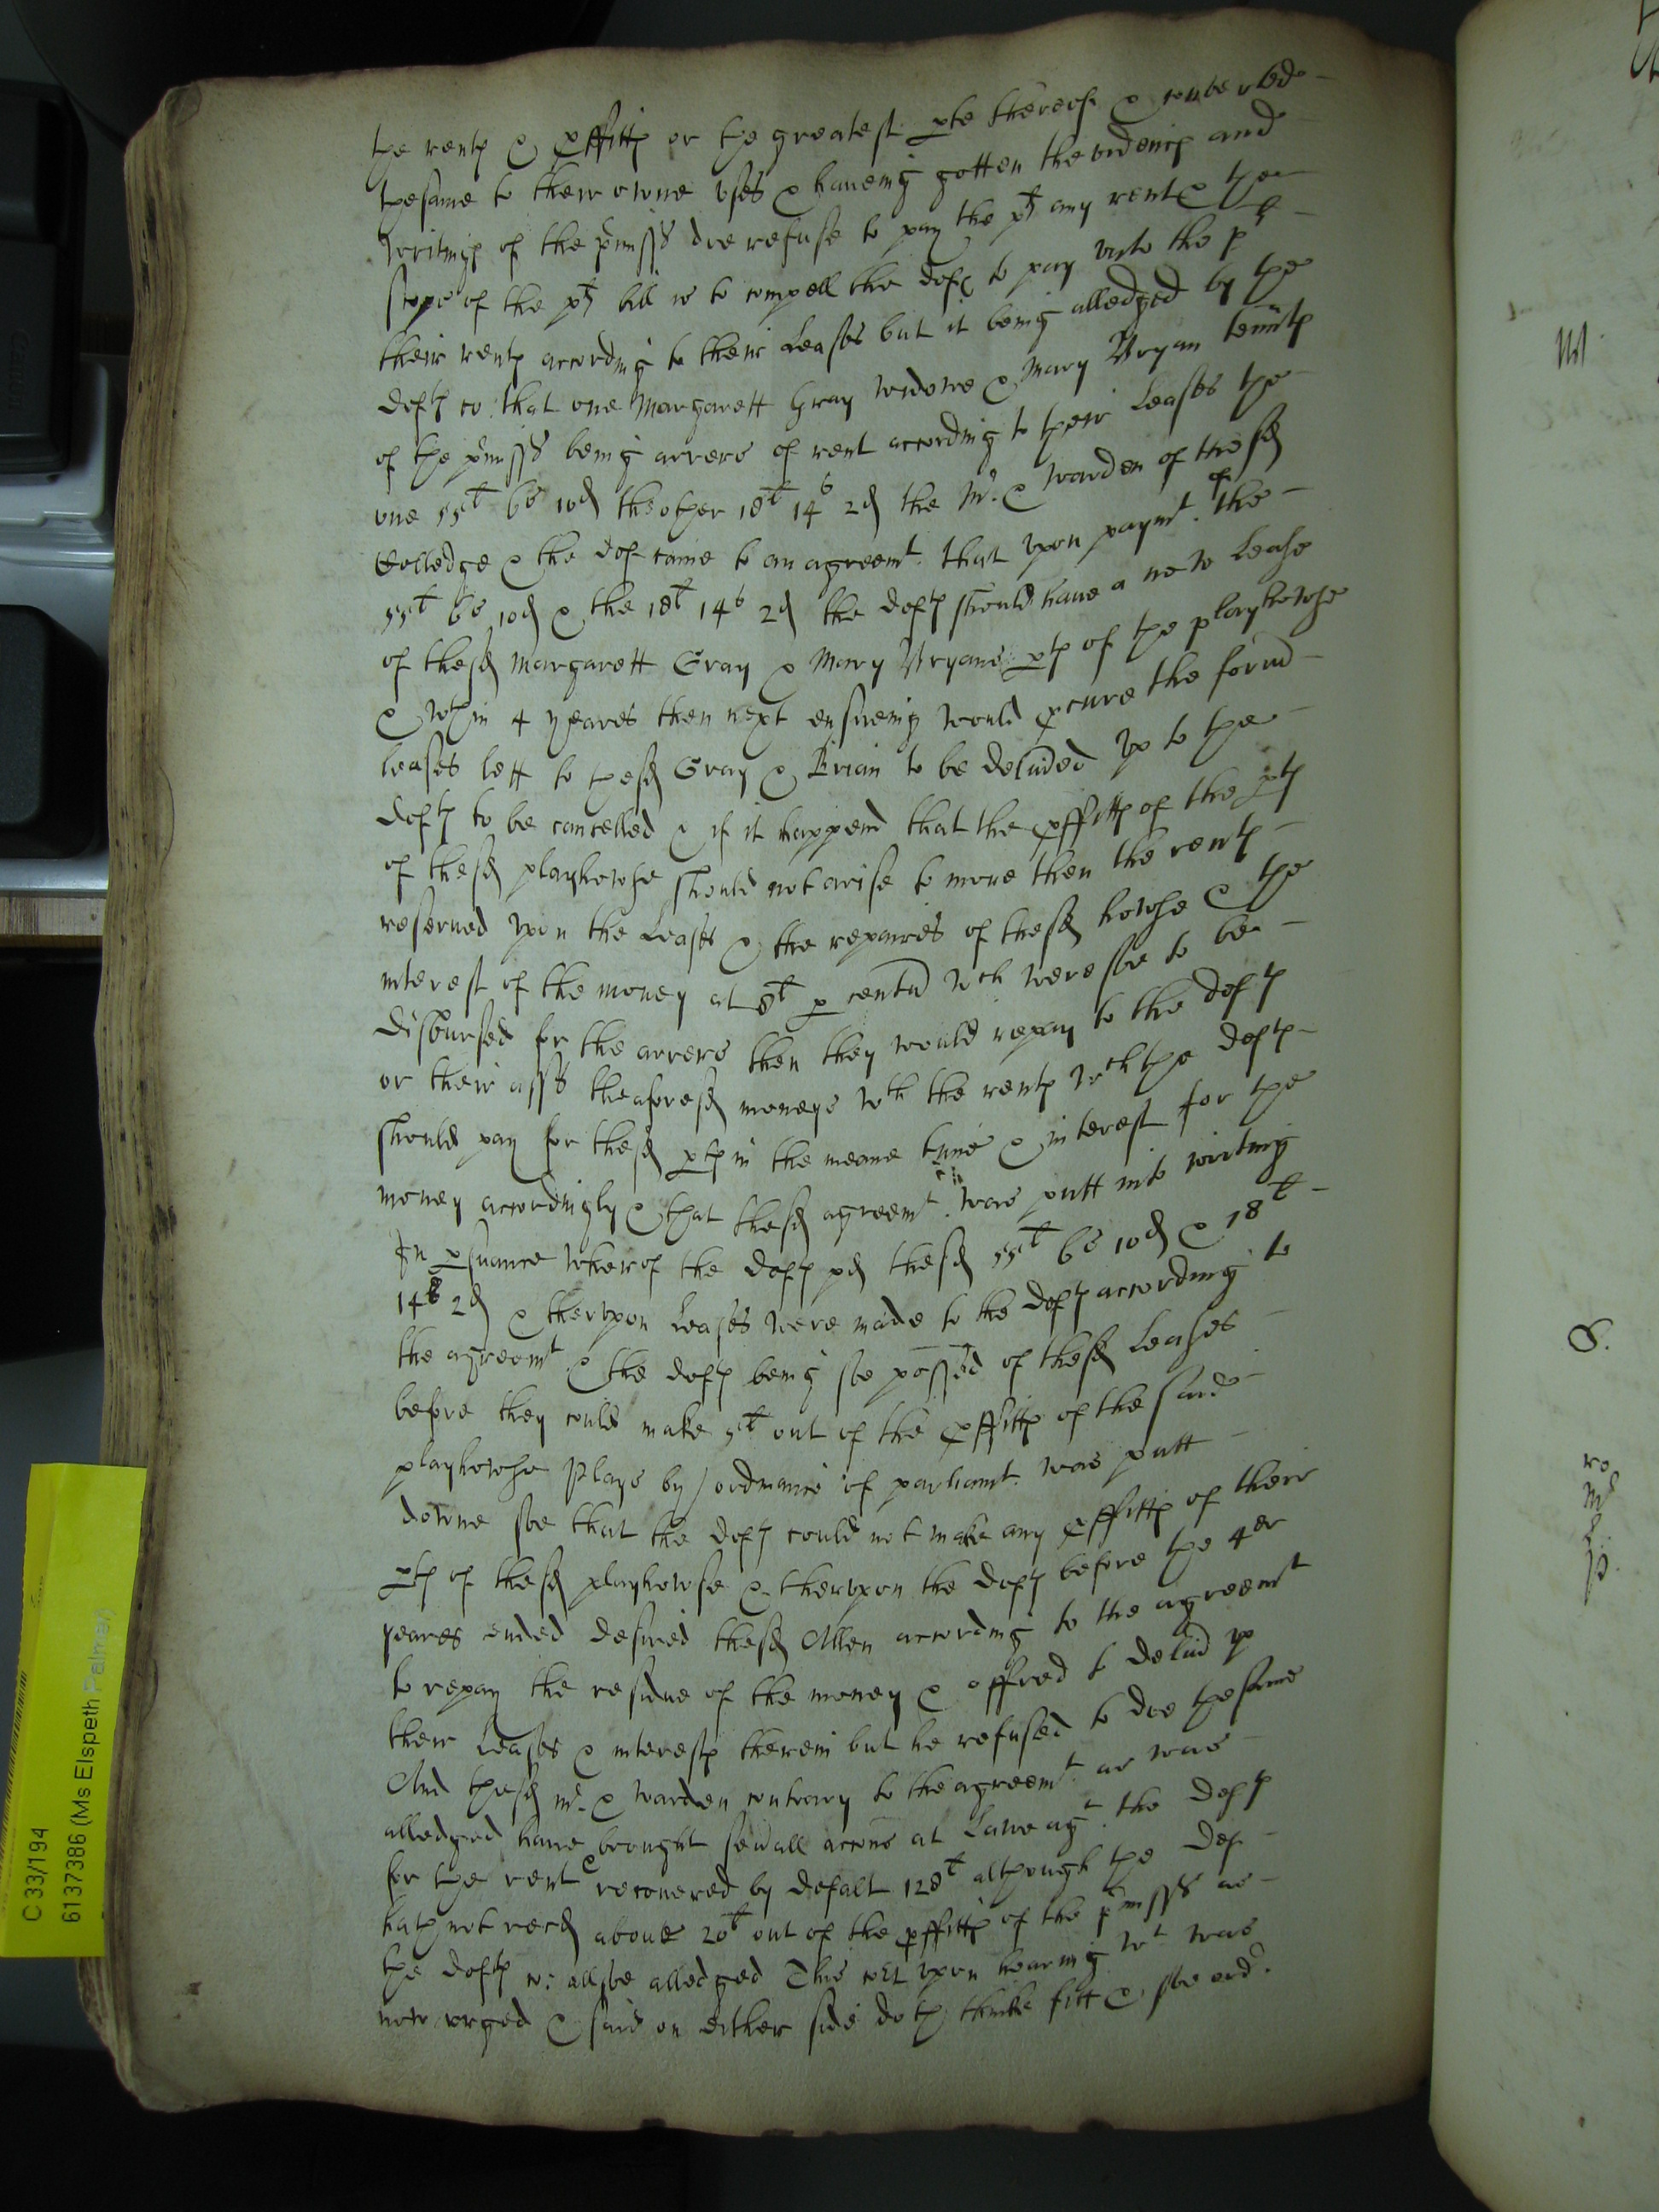 the rentꝭ & ꝓffittꝭ or the greatest ꝑte thereof & conuerted
thesame to their owne vses & haueing gotten the evidencꝭ and
writingꝭ of the p̄missꝭ doe refuse to pay the plt any rent & the
scope of the plt bill is to compell the deft to pay vnto the pl
their rentꝭ according to their Leases but it being alledged by the
deftꝭ co: that one Margarett Gray widowe & Mary Bryan tennᵗꝭ
of the p̄missꝭ being arrere of rent according to their Leases the
one 55ˡ 6ˢ 10ᵈ the other 18ˡ 14ˢ 2ᵈ the Mʳ. & warden of the sd
Colledge & the def came to an agreemᵗ. that vpon paymᵗ. of the
55ˡ 6ˢ 10ᵈ & the 18ˡ 14ˢ 2ᵈ the deftꝭ should haue a new Lease
of thesd Margarett Gray & Mary Bryans ꝑtꝭ of the playhowse
& wᵗʰin 4 yeares then next ensueing would ꝓcure the form̄
leases lett to thesd Gray & Brian to be deliūed vp to the
deftꝭ to be cancelled & if it happend that the ꝓffittꝭ of the ꝑtꝭ
of thesd playhowse should not arise to more then the rentꝭ
reserued vpon the Leases & the repaires of thesd howse & the
interest of the money at 8ˡ ꝑ centū wᶜʰ were soe to be
disbursed for the arrere then they would repay to the deftꝭ
or their assꝭ theaforesd moneys wᵗʰ the rentꝭ wᶜʰ the deftꝭ
should pay for thesd ꝑtꝭ in the meane time & interest for the
money accordingly & that thesd agreemᵗ. was putt into writing
In ꝑsuance wherof the deftꝭ pd thesd 55ˡ 6ˢ 10ᵈ & 18ˡ
14ˢ 2ᵈ & therevpon Leases were made to the deftꝭ according to
the agreemᵗ & the deftꝭ being soe possēd of thesd Leases
before they could make 5ˡ out of the ꝓffittꝭ of the said
playhowse Plays by ordinance of parliamᵗ. was putt
downe soe that the deftꝭ could not make any ꝓffittꝭ of their
ꝑtꝭ of thesd playhowse & therevpon the deftꝭ before the 4er
yeares ended desired thesd Allen according to the agreemᵗ
to repay the residue of the money & offred to deliū vp
their Leases & interestꝭ therein but he refused to doe thesame
And thesd mʳ. & warden contrary to the agreemᵗ as was
alledged haue brought seūall accons at Lawe agᵗ. the deftꝭ
for the rent & recouered by defalt 128ˡ although the def
hath not recd aboue 20ˡ out of the ꝓffittꝭ of the p̄missꝭ as
the deftꝭ co: allsoe alledged This cort vpon hearing wᵗ was
now vrged & said on either side doth thinke fitt & soe ord
C 33/194
6137386 (Ms Elspeth Palmer)